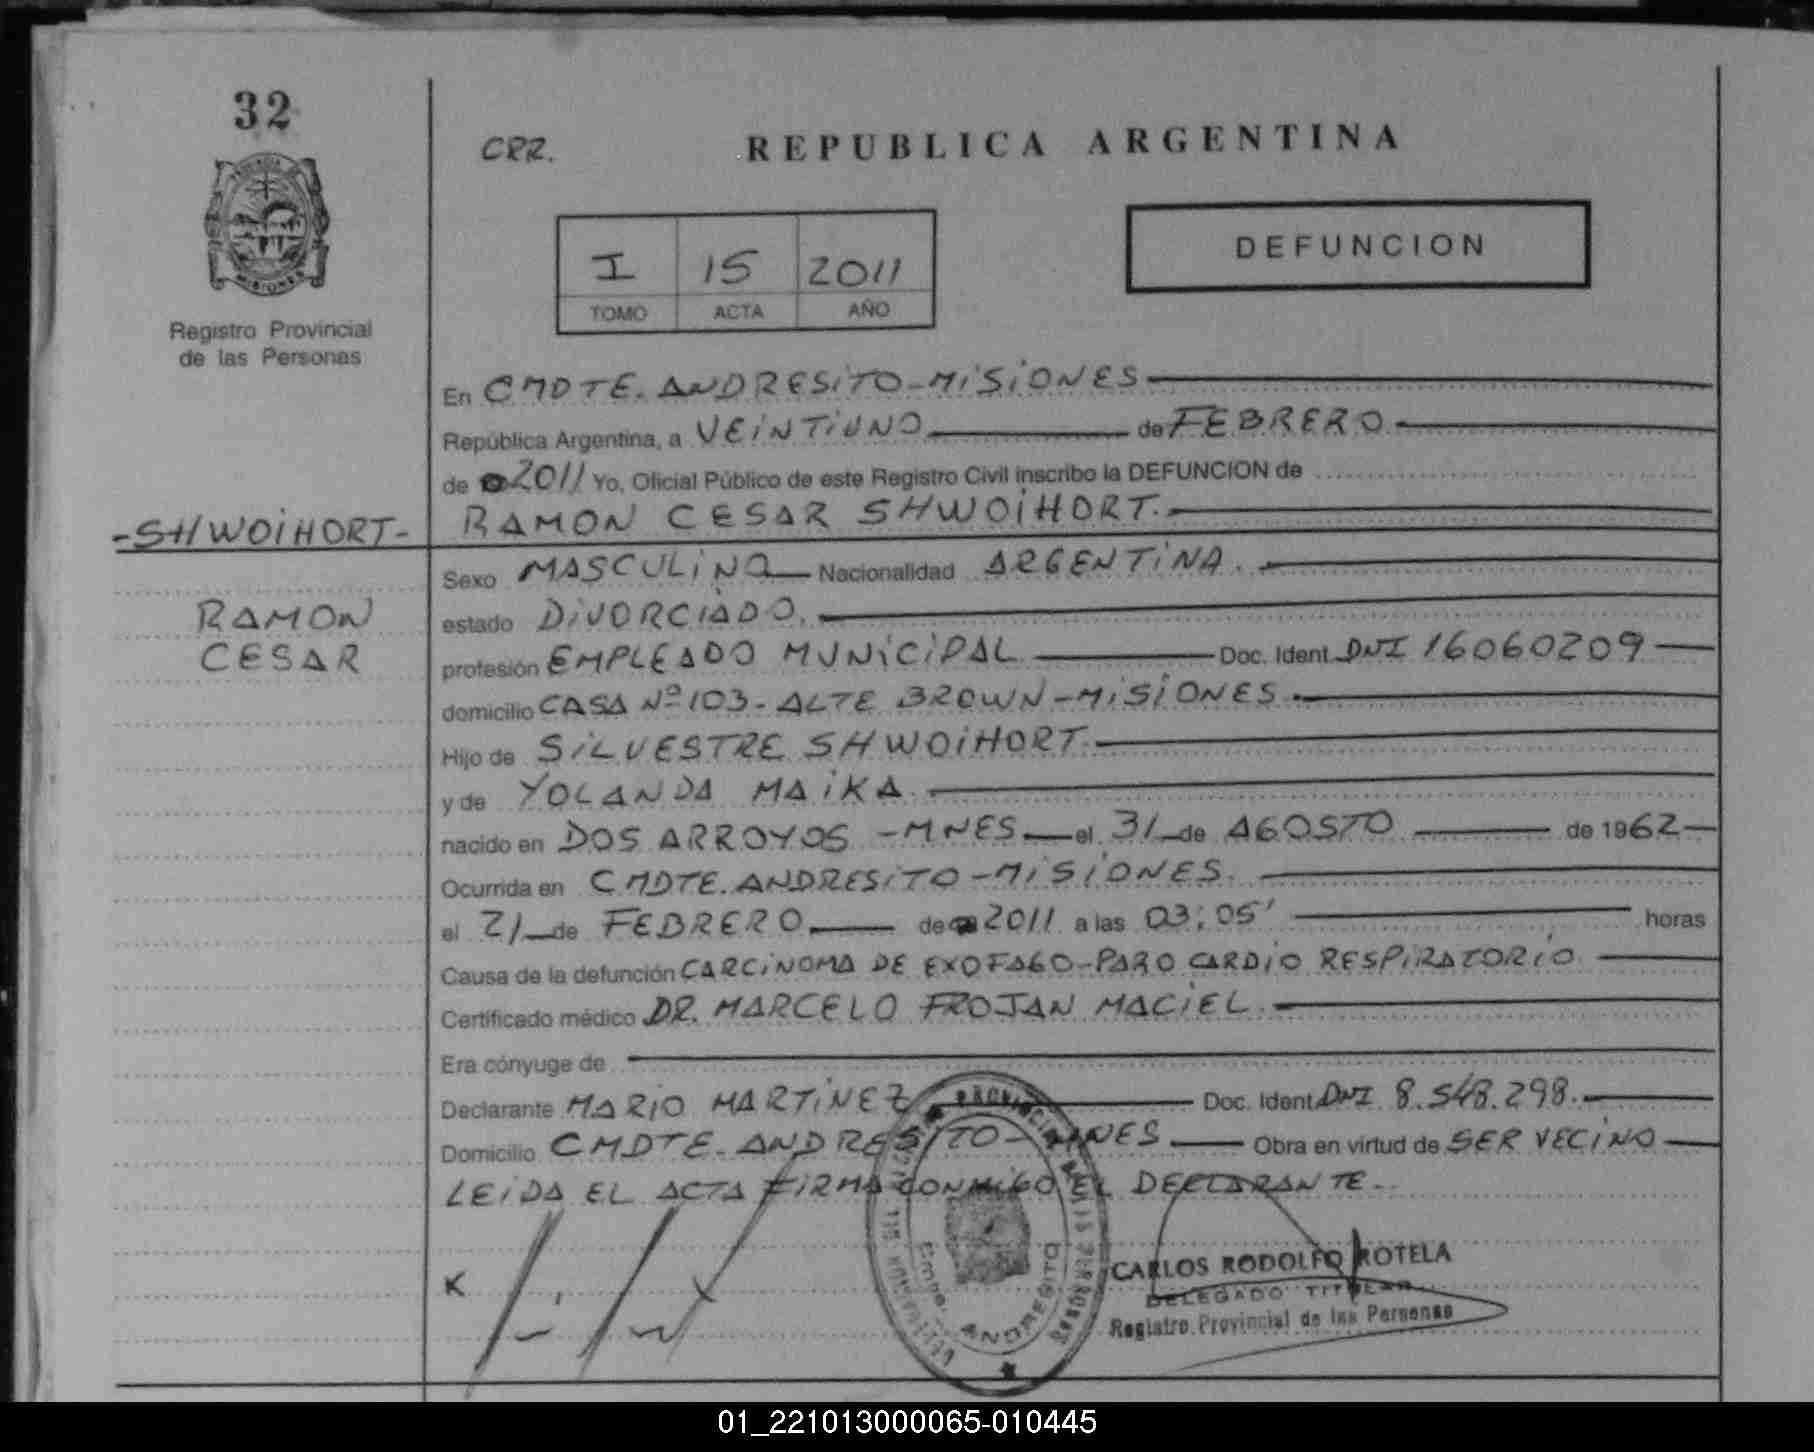 32
CRR.
REPUBLICA ARGENTINA
MISIONES
Registro Provincial
de las Personas
I 15 2011
TOMO ACTA AÑO
DEFUNCION
En CMDTE. ANDRESITO-MISIONES
República Argentina, a VEINTIUNO de FEBRERO
de 2011 Yo, Oficial Público de este Registro Civil inscribo la DEFUNCION de
-SHWOIHORT- RAMON CESAR SHWOIHORT.
Sexo MASCULINO Nacionalidad ARGENTINA.
RAMON
CESAR
estado DIVORCIADO.
profesión EMPLEADO MUNICIPAL Doc. Ident. DNI 16060209
domicilio CASA Nº 103- ALTE BROWN-MISIONES.
Hijo de SILVESTRE SHWOIHORT.
y de YOLANDA MAIKA.
nacido en DOS ARROYOS -MNES el 31 de AGOSTO de 1962
Ocurrida en CMDTE. ANDRESITO-MISIONES.
el 21 de FEBRERO de 2011 a las 03:05' horas
Causa de la defunción CARCINOMA DE EXOFAGO-PARO CARDIO RESPIRATORIO
Certificado médico DR. MARCELO FROJAN MACIEL.
Era cónyuge de
Declarante MARIO MARTINEZ Doc. Ident. DNI 8.548.298.
Domicilio CMDTE. ANDRESITO-MNES Obra en virtud de SER VECINO
LEIDA EL ACTA FIRMA CONMIGO EL DECLARANTE.
ANDRESITO
CARLOS RODOLFO ROTELA
DELEGADO TITULAR
Registro Provincial de las Personas
01_221013000065-010445